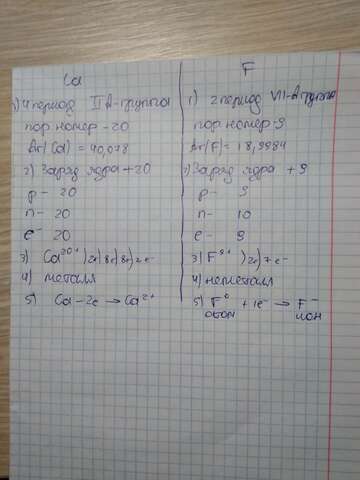 Ca
1) 4 период II А-группа
пор номер - 20
Ar(Ca) = 40,078
2) Заряд ядра + 20
p - 20
n - 20
e - 20
3) Ca²⁰⁺)2e)8e)8e)2e⁻
4) металл
5) Ca - 2e → Ca²⁺
F
1) 2 период VII-А группа
пор номер 9
Ar(F) = 18,9984
2) Заряд ядра + 9
p - 9
n - 10
e - 9
3) F⁹⁺)2e)7e⁻
4) неметалл
5) F⁰ + 1e⁻ → F⁻
атом ион